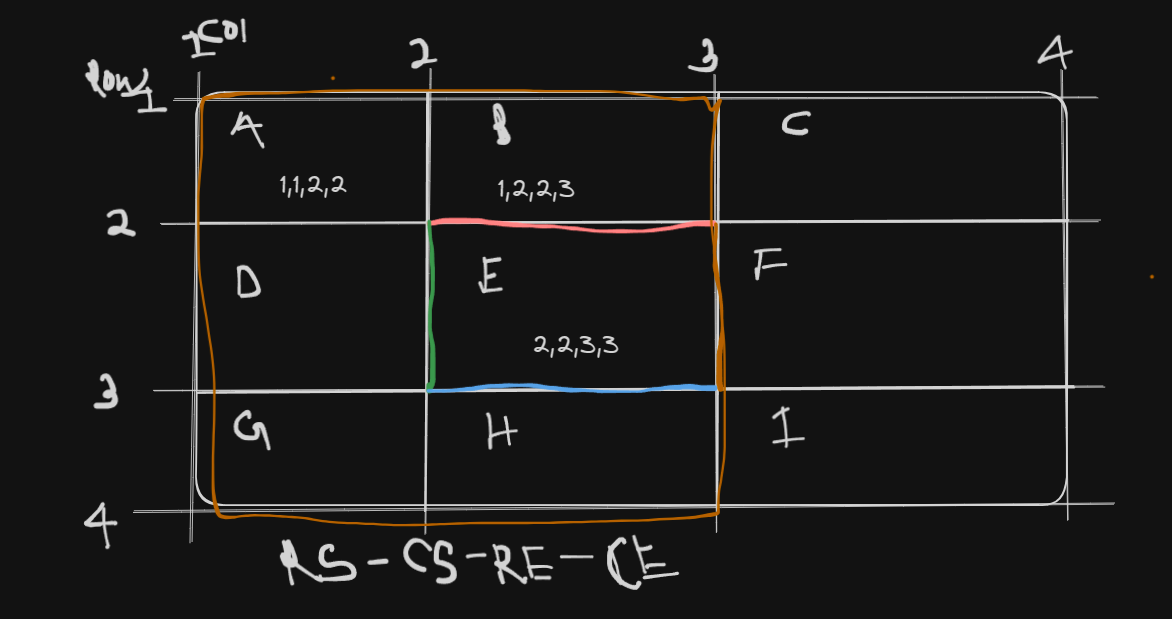 Col
1 2 3 4
Row 1
A B C
1,1,2,2 1,2,2,3
2
D E F
2,2,3,3
3
G H I
4
RS-CS-RE-CE